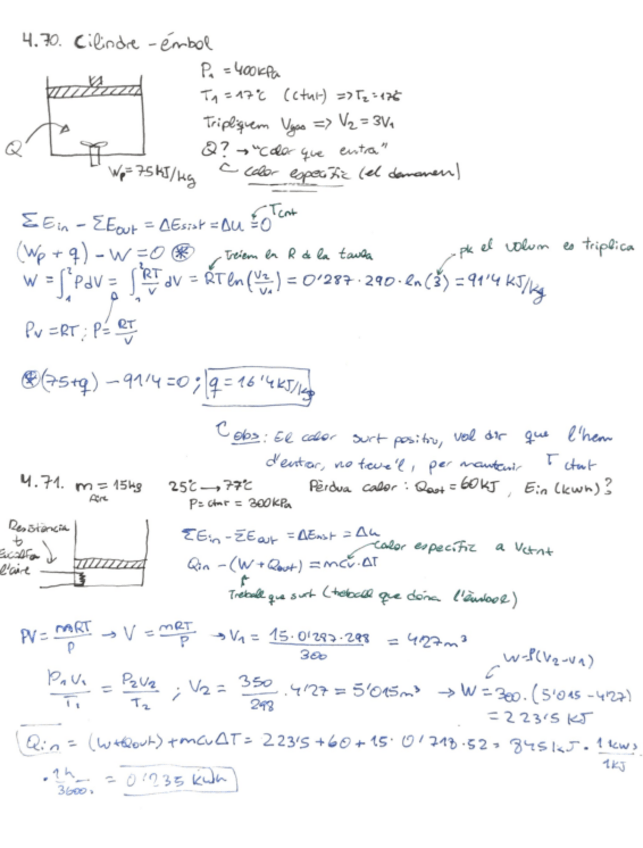 4.70. Cilindre - émbol
P₁ = 400 kPa
T₁ = 17°C (ctnt) => T₂ = 17°C
Tripliquem Vgas => V₂ = 3V₁
Q? → "Calor que entra"
Calor específic (el demanen)
Q
Wp = 75 kJ/kg
ΣEin - ΣEout = ΔEsist = Δu = 0
Tctnt
(Wp + q) - W = 0 ⊛
Treiem la R de la taula
pk el volum es triplica
W = ∫₁² PdV = ∫₁² RT/V dV = RT ln(V₂/V₁) = 0'287 · 290 · ln(3) = 91'4 kJ/kg
Pv = RT ; P = RT/V
⊛ (75+q) - 91'4 = 0 ; q = 16'4 kJ/kg
obs: El calor surt positiu, vol dir que l'hem
d'entrar, no treure'l, per mantenir T ctnt
4.71. m = 15kg 25°C → 77°C Pèrdua calor : Qout = 60 kJ , Ein (kwh)?
aire P = ctnt = 300 kPa
Resistència
Escalfa
l'aire
ΣEin - ΣEout = ΔEsist = Δu
Calor específic a Vctnt
Qin - (W + Qout) = mcv · ΔT
Treball que surt (treball que dona l'èmbol)
V = mRT/P → V₁ = 15 · 0'287 · 298 / 300 = 4'27 m³
W = P(V₂-V₁)
P₁V₁/T₁ = P₂V₂/T₂ ; V₂ = 350/298 · 4'27 = 5'015 m³ → W = 300 · (5'015 - 4'27)
= 223'5 kJ
Qin = (W+Qout) + mcvΔT = 223'5 + 60 + 15 · 0'718 · 52 = 845 kJ · 1 kws/1kJ
· 1h/3600s = 0'235 kwh